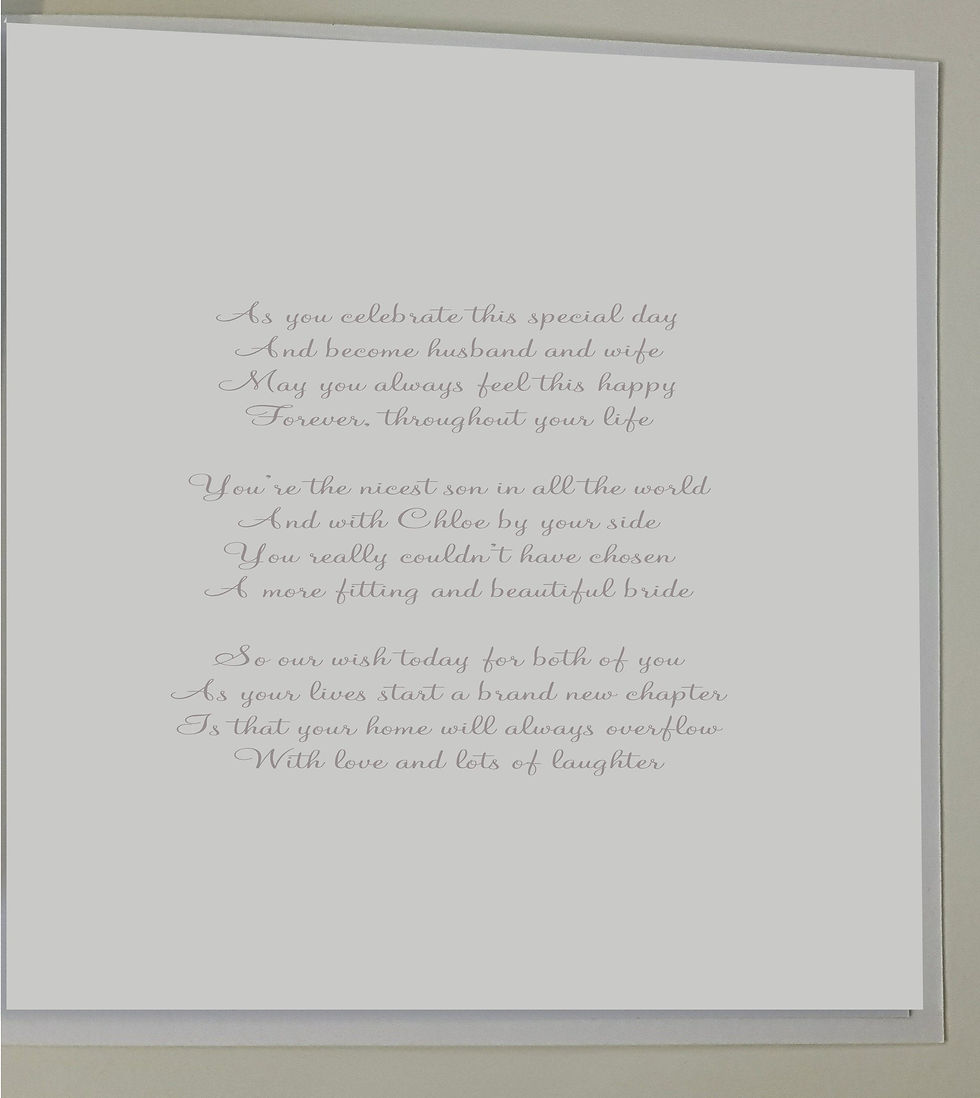 As you celebrate this special day
And become husband and wife
May you always feel this happy
Forever, throughout your life
You're the nicest son in all the world
And with Chloe by your side
You really couldn't have chosen
A more fitting and beautiful bride
So our wish today for both of you
As your lives start a brand new chapter
Is that your home will always overflow
With love and lots of laughter